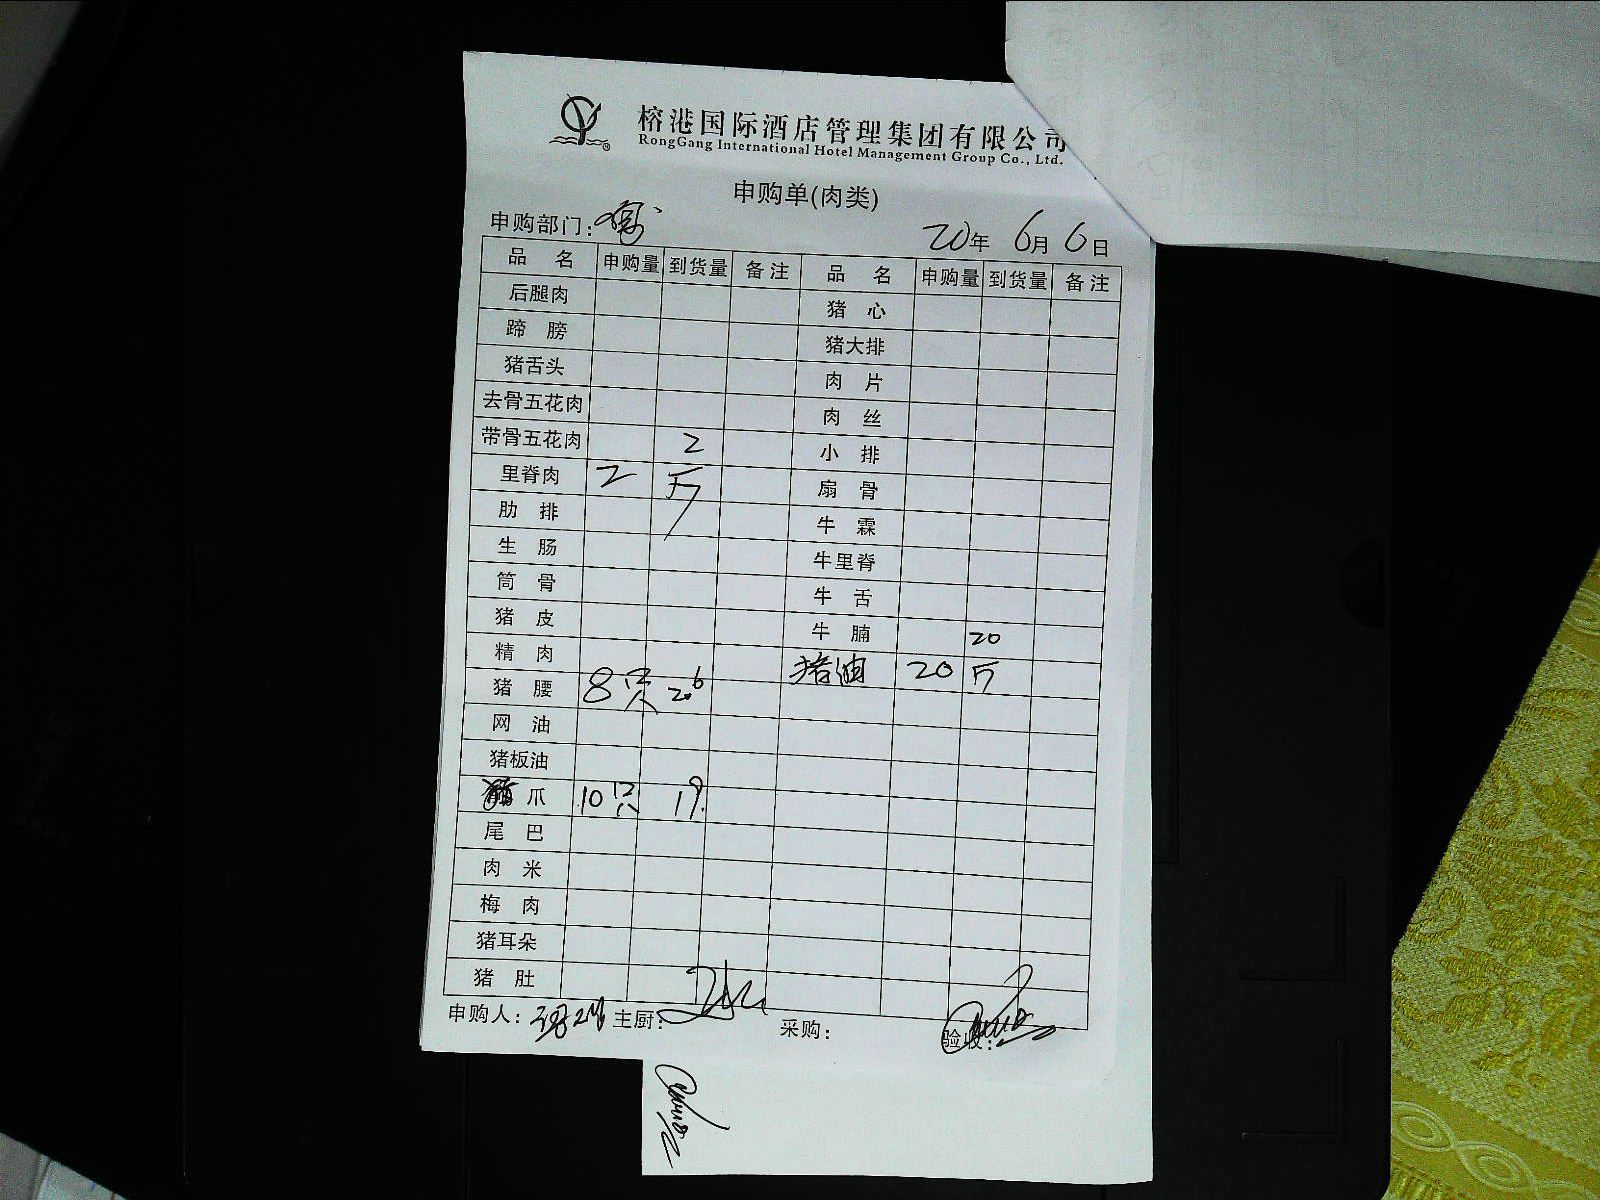 榕港国际酒店管理集团有限公司
RongGang International Hotel Management Group Co., Ltd.
申购单(肉类)
申购部门: 20年 6月 6日
品 名 申购量 到货量 备注 品 名 申购量 到货量 备注
后腿肉 猪 心
蹄 膀 猪大排
猪舌头 肉 片
去骨五花肉 肉 丝
带骨五花肉 2 小 排
里脊肉 2 斤 扇 骨
肋 排 牛 霖
生 肠 牛里脊
筒 骨 牛 舌
猪 皮 牛 腩 20
精 肉 猪油 20 斤
猪 腰 8只 20.6
网 油
猪板油
爪 10只 19.
尾 巴
肉 米
梅 肉
猪耳朵
猪 肚
申购人: 主厨: 采购: 验收: